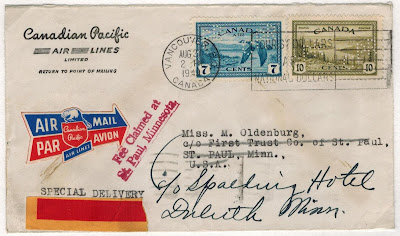 Canadian Pacific
AIR LINES
LIMITED
RETURN TO POINT OF MAILING
VANCOUVER
AUG
2
194
CANADA
CANADA
7 CENTS 7
CANADA
10 CENTS 10
DOLLARS
NATIONAL DOLLARS
AIR MAIL
PAR AVION
Canadian
Pacific
AIR LINES
Fee Claimed at
St. Paul, Minnesota
Miss M. Oldenburg,
c/o First Trust Co. of St. Paul,
ST. PAUL, Minn.,
U.S.A.
SPECIAL DELIVERY
c/o Spalding Hotel
Duluth Minn.